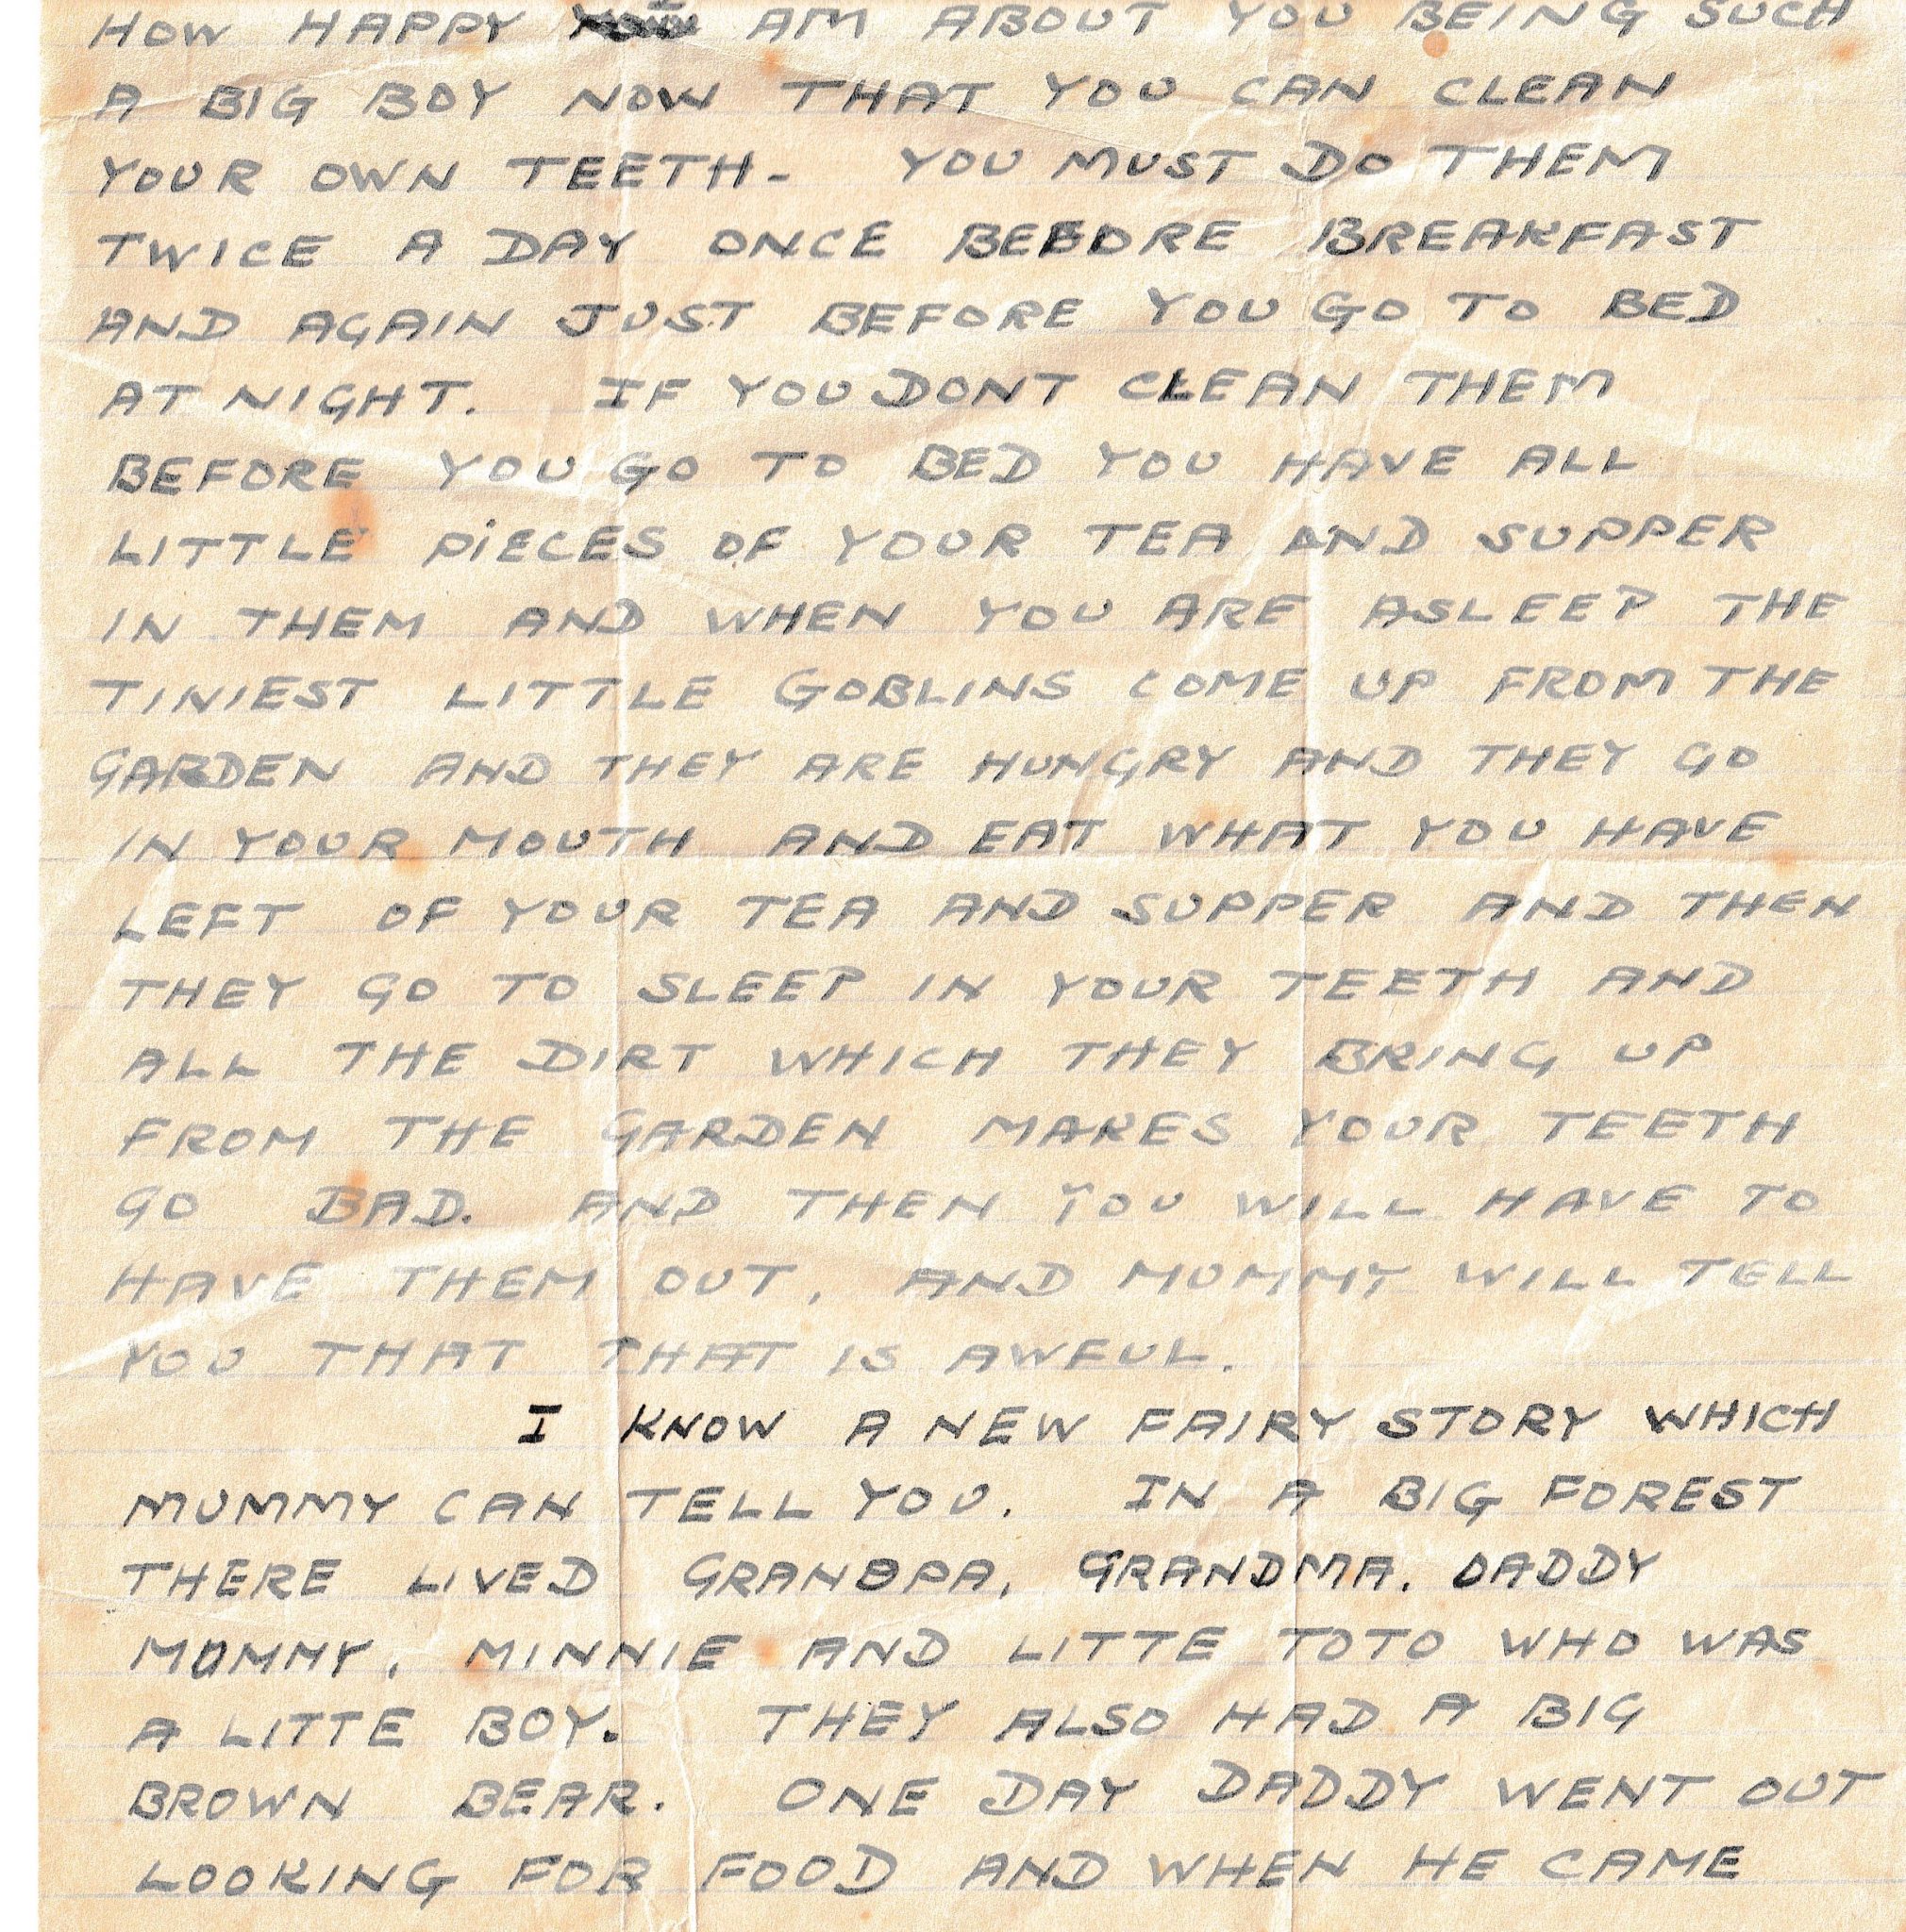 HOW HAPPY I AM ABOUT YOU BEING SUCH
A BIG BOY NOW THAT YOU CAN CLEAN
YOUR OWN TEETH. YOU MUST DO THEM
TWICE A DAY ONCE BEFORE BREAKFAST
AND AGAIN JUST BEFORE YOU GO TO BED
AT NIGHT. IF YOU DONT CLEAN THEM
BEFORE YOU GO TO BED YOU HAVE ALL
LITTLE PiECES OF YOUR TEA AND SUPPER
IN THEM AND WHEN YOU ARE ASLEEP THE
TINIEST LITTLE GOBLINS COME UP FROM THE
GARDEN AND THEY ARE HUNGRY AND THEY GO
IN YOUR MOUTH AND EAT WHAT YOU HAVE
LEFT OF YOUR TEA AND SUPPER AND THEN
THEY GO TO SLEEP IN YOUR TEETH AND
ALL THE DIRT WHICH THEY BRING UP
FROM THE GARDEN MAKES YOUR TEETH
GO BAD. AND THEN YOU WILL HAVE TO
HAVE THEM OUT, AND MUMMY WILL TELL
YOU THAT THAT IS AWFUL.
I KNOW A NEW FAIRY STORY WHICH
MUMMY CAN TELL YOU. IN A BIG FOREST
THERE LIVED GRANDPA, GRANDMA. DADDY
MUMMY, MINNIE AND LITTE TOTO WHO WAS
A LITTE BOY. THEY ALSO HAD A BIG
BROWN BEAR. ONE DAY DADDY WENT OUT
LOOKING FOR FOOD AND WHEN HE CAME